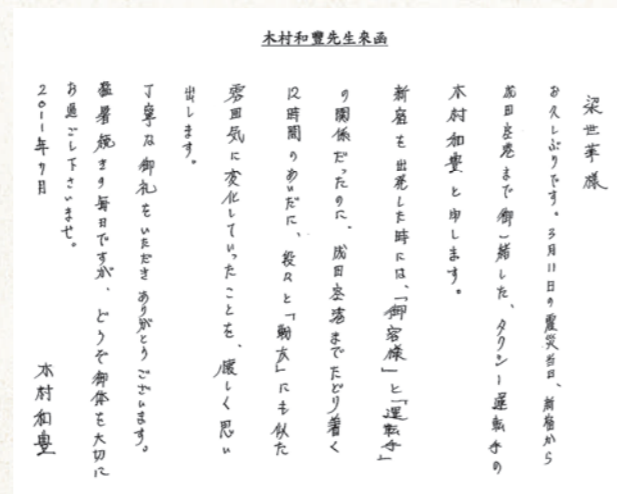 木村和豐先生來函
梁世華様
お久しぶりです。3月11日の震災当日、新宿から
成田空港まで御一緒した、タクシー運転手の
木村和豊と申します。
新宿を出発した時には、「御客様」と「運転手」
の関係だったのに、成田空港までたどり着く
12時間のあいだに、段々と「戦友」にも似た
雰囲気に変化していったことを、懐しく思い
出します。
丁寧な御礼をいただきありがとうございます。
猛暑続きの毎日ですが、どうぞ御体を大切に
お過ごし下さいませ。
2011年7月
木村和豊